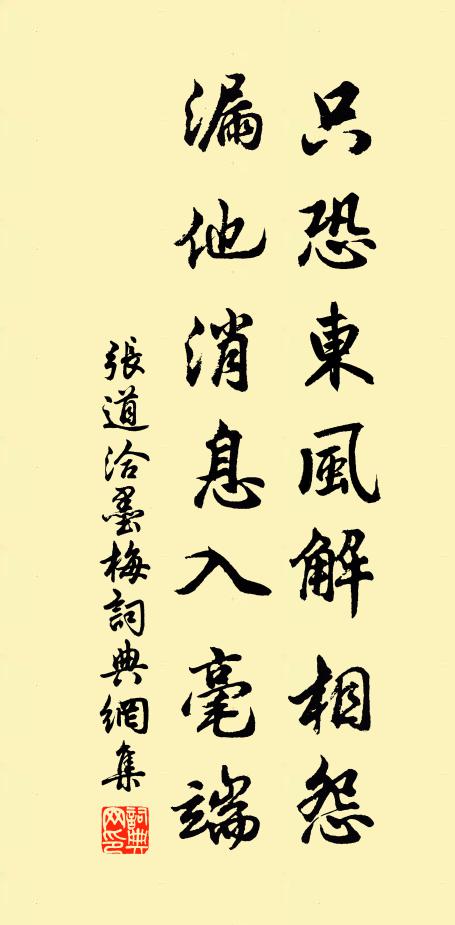 只恐東風解相怨
漏他消息入毫端
張道洽墨梅詞典網集
詞典网印